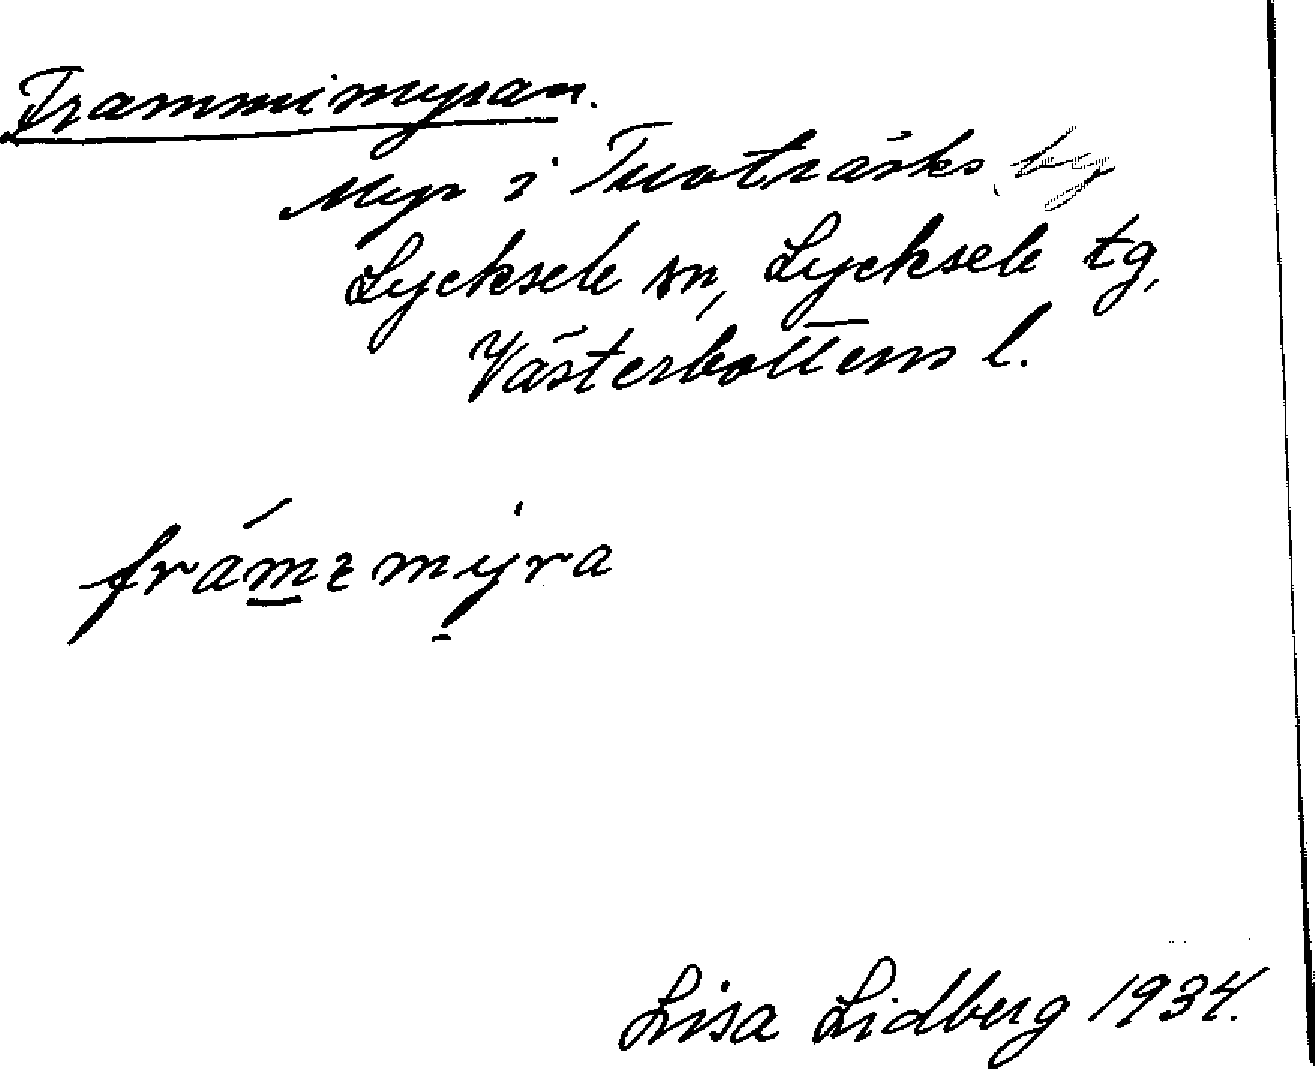 Frammimyran.
Myr i Tuvträsks by
Lycksele sn, Lycksele tg,
Västerbottens l.
Lisa Lidberg 1934.